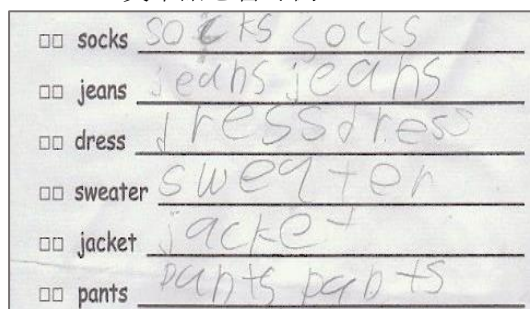 □□ socks socks socks
□□ jeans jeans jeans
□□ dress dress dress
□□ sweater sweater
□□ jacket jacket
□□ pants pants pants